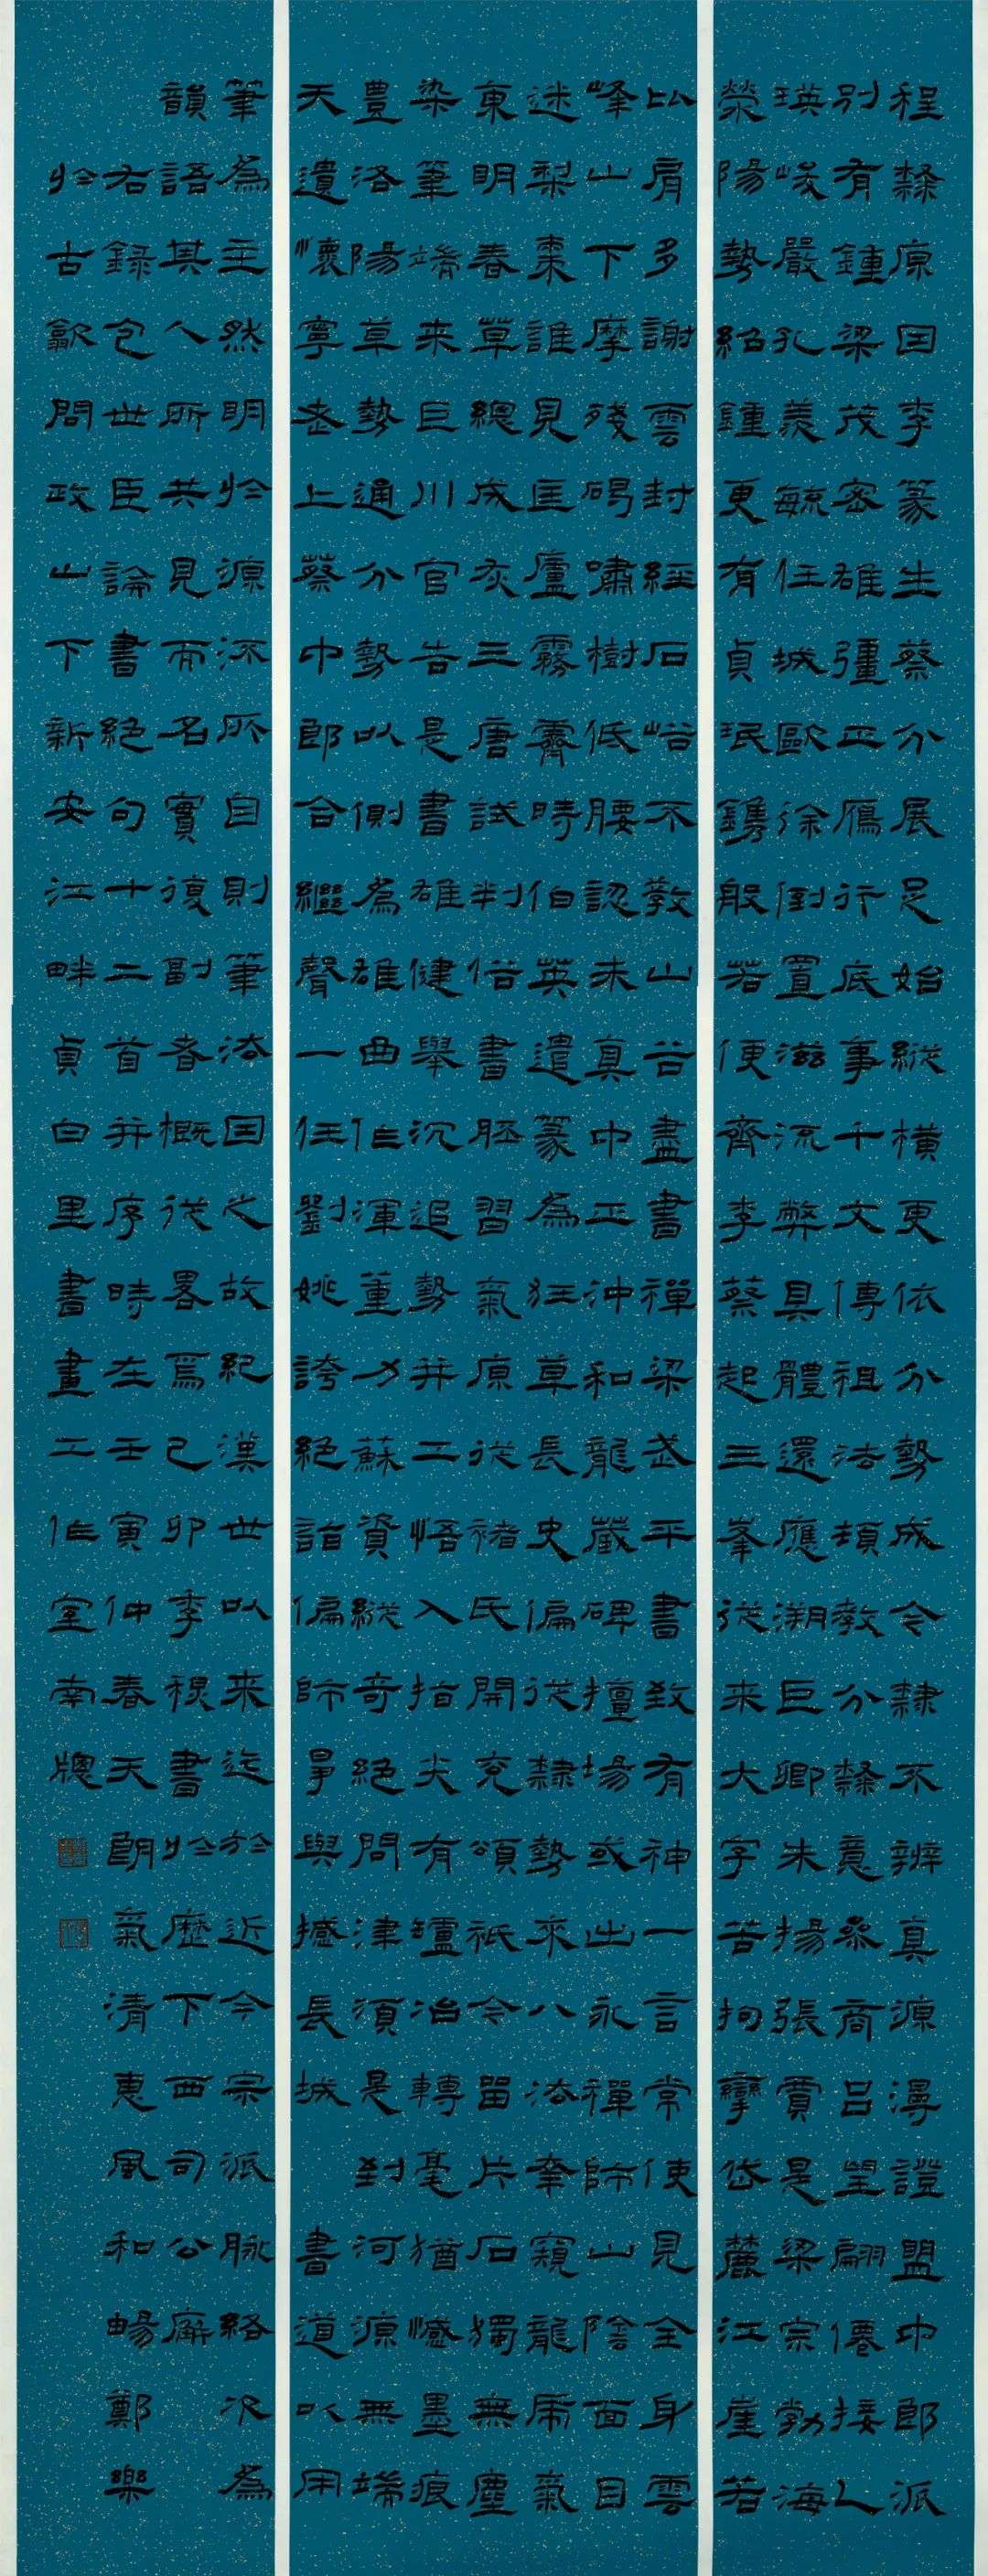 程隸原因李篆生蔡分展足始縱橫更依分勢成今隸不辨真源漫證盟中郎派
別有鍾梁茂密雄彊正鴈行底事千文傳祖法頓教分隸意參商呂望翩僊接乙
瑛峻嚴孔羨毓任城歐徐倒置滋流弊具體還應溯巨卿朱揚張賈是梁宗勃海
滎陽勢紹鍾更有貞珉鐫般若便齊李蔡起三峯從來大字苦拘攣岱麓江崖若
比肩多謝雲封經石峪不教山谷盡書禪梁武平書致有神一言常使見全身雲
峰山下摩殘碣嘯樹低腰認未真中正沖和龍藏碑擅場或出永禪師山陰面目
迷梨棗誰見匡廬霧霽時伯英遺篆為狂草長史偏從隸勢來八法拏窺龍虎氣
東明春草總成灰三唐試判俗書胚習氣原從褚氏開兗頌祇今留片石獨無塵
染筆端来巨川官告是書雄健舉沉追勢并工悟入指尖有爐冶轉毫猶憾墨痕
豊洛陽草勢通分勢以側為雄曲作渾董力蘇資縱奇絕問津須是到河源無端
天遺懷寧老上蔡中郎合繼聲一任劉姚誇絕詣偏師爭與撼長城 書道以用
筆為主然明於源流所自則筆法因之故紀漢世以来迄於近今宗派脈絡次為
韻語其人所共見而名實復副者概從畧焉己卯季穐書於歷下西司公廨
右録包世臣論書絕句十二首并序時在壬寅仲春天朗氣清惠風和暢鄭樂
於古歙問政山下新安江畔貞白里書畫工作室南牕